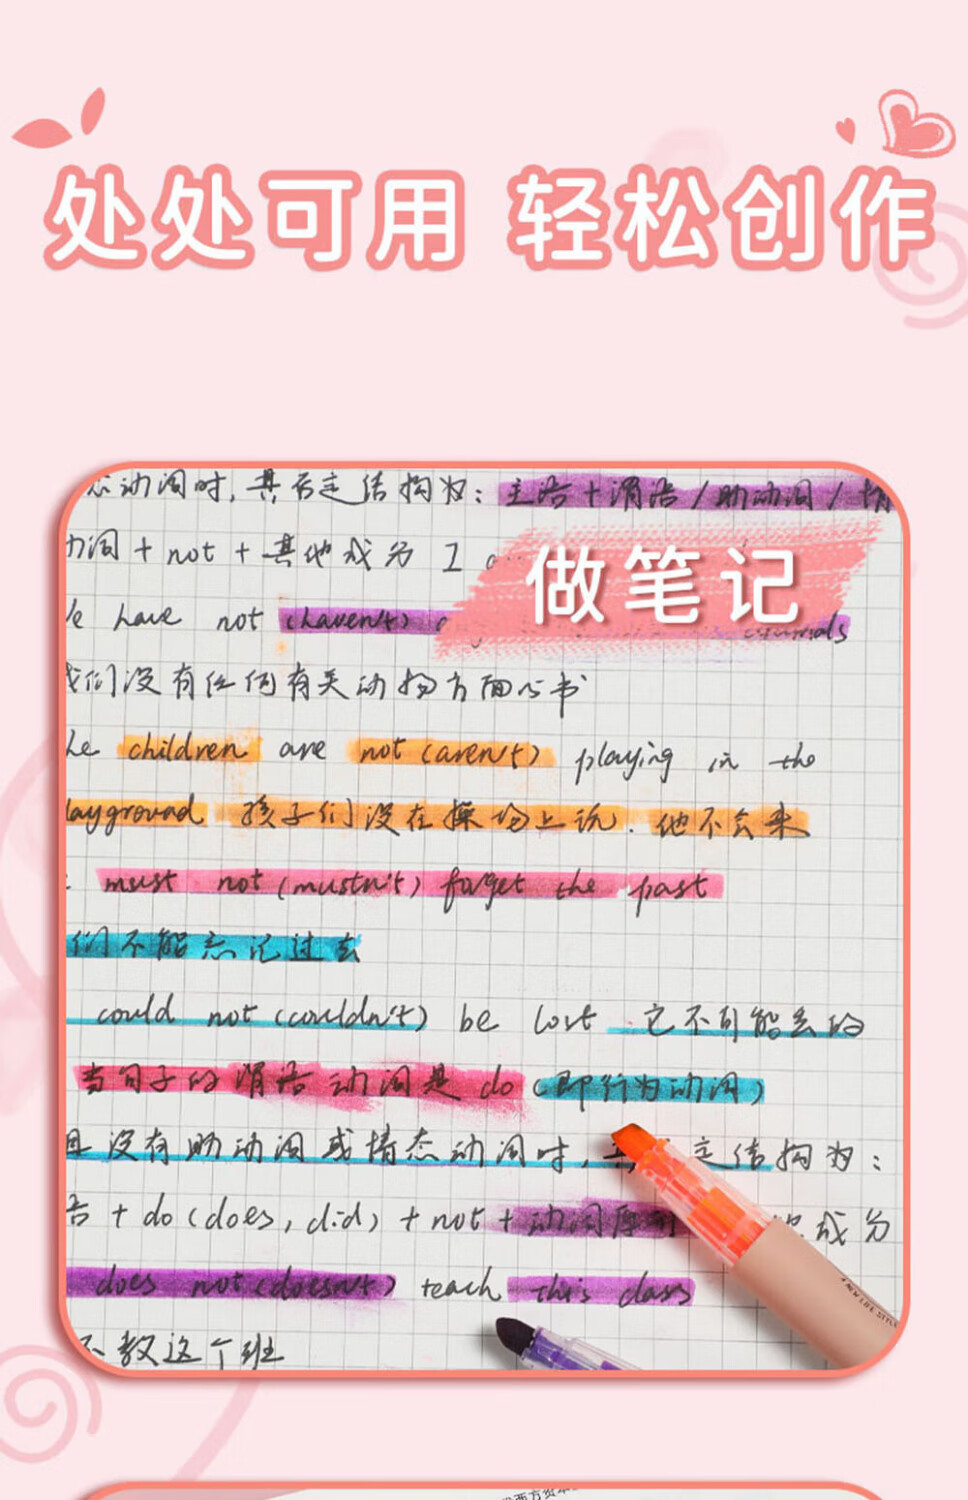 处处可用 轻松创作
态动词时，其否定结构为：主语+谓语/助动词/情
动词+not+其他成分 I
We have not (haven't)
做笔记
我们没有任何有关动物方面的书
The children are not (aren't) playing in the
playground 孩子们没在操场上玩. 他不会来
: must not (mustn't) forget the past
们不能忘记过去
could not (couldn't) be lost 它不可能丢的
当句子的谓语动词是 do (即行为动词)
且没有助动词或情态动词时，其否定结构为：
语+do (does, did) +not+动词原 成分
does not (doesn't) teach this class
不教这个班
A NEW LIFE STYLE